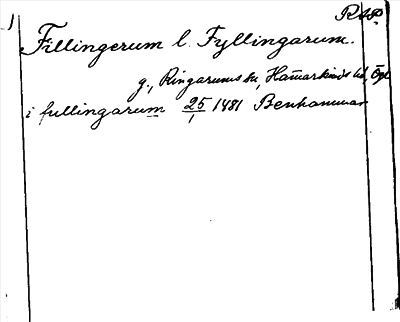 1) RAP.
Fillingerum l. Fyllingarum.
g., Ringarums sn, Hamarkinds hd, Ögl
i fullingarum 25/1 1481 Benhammar